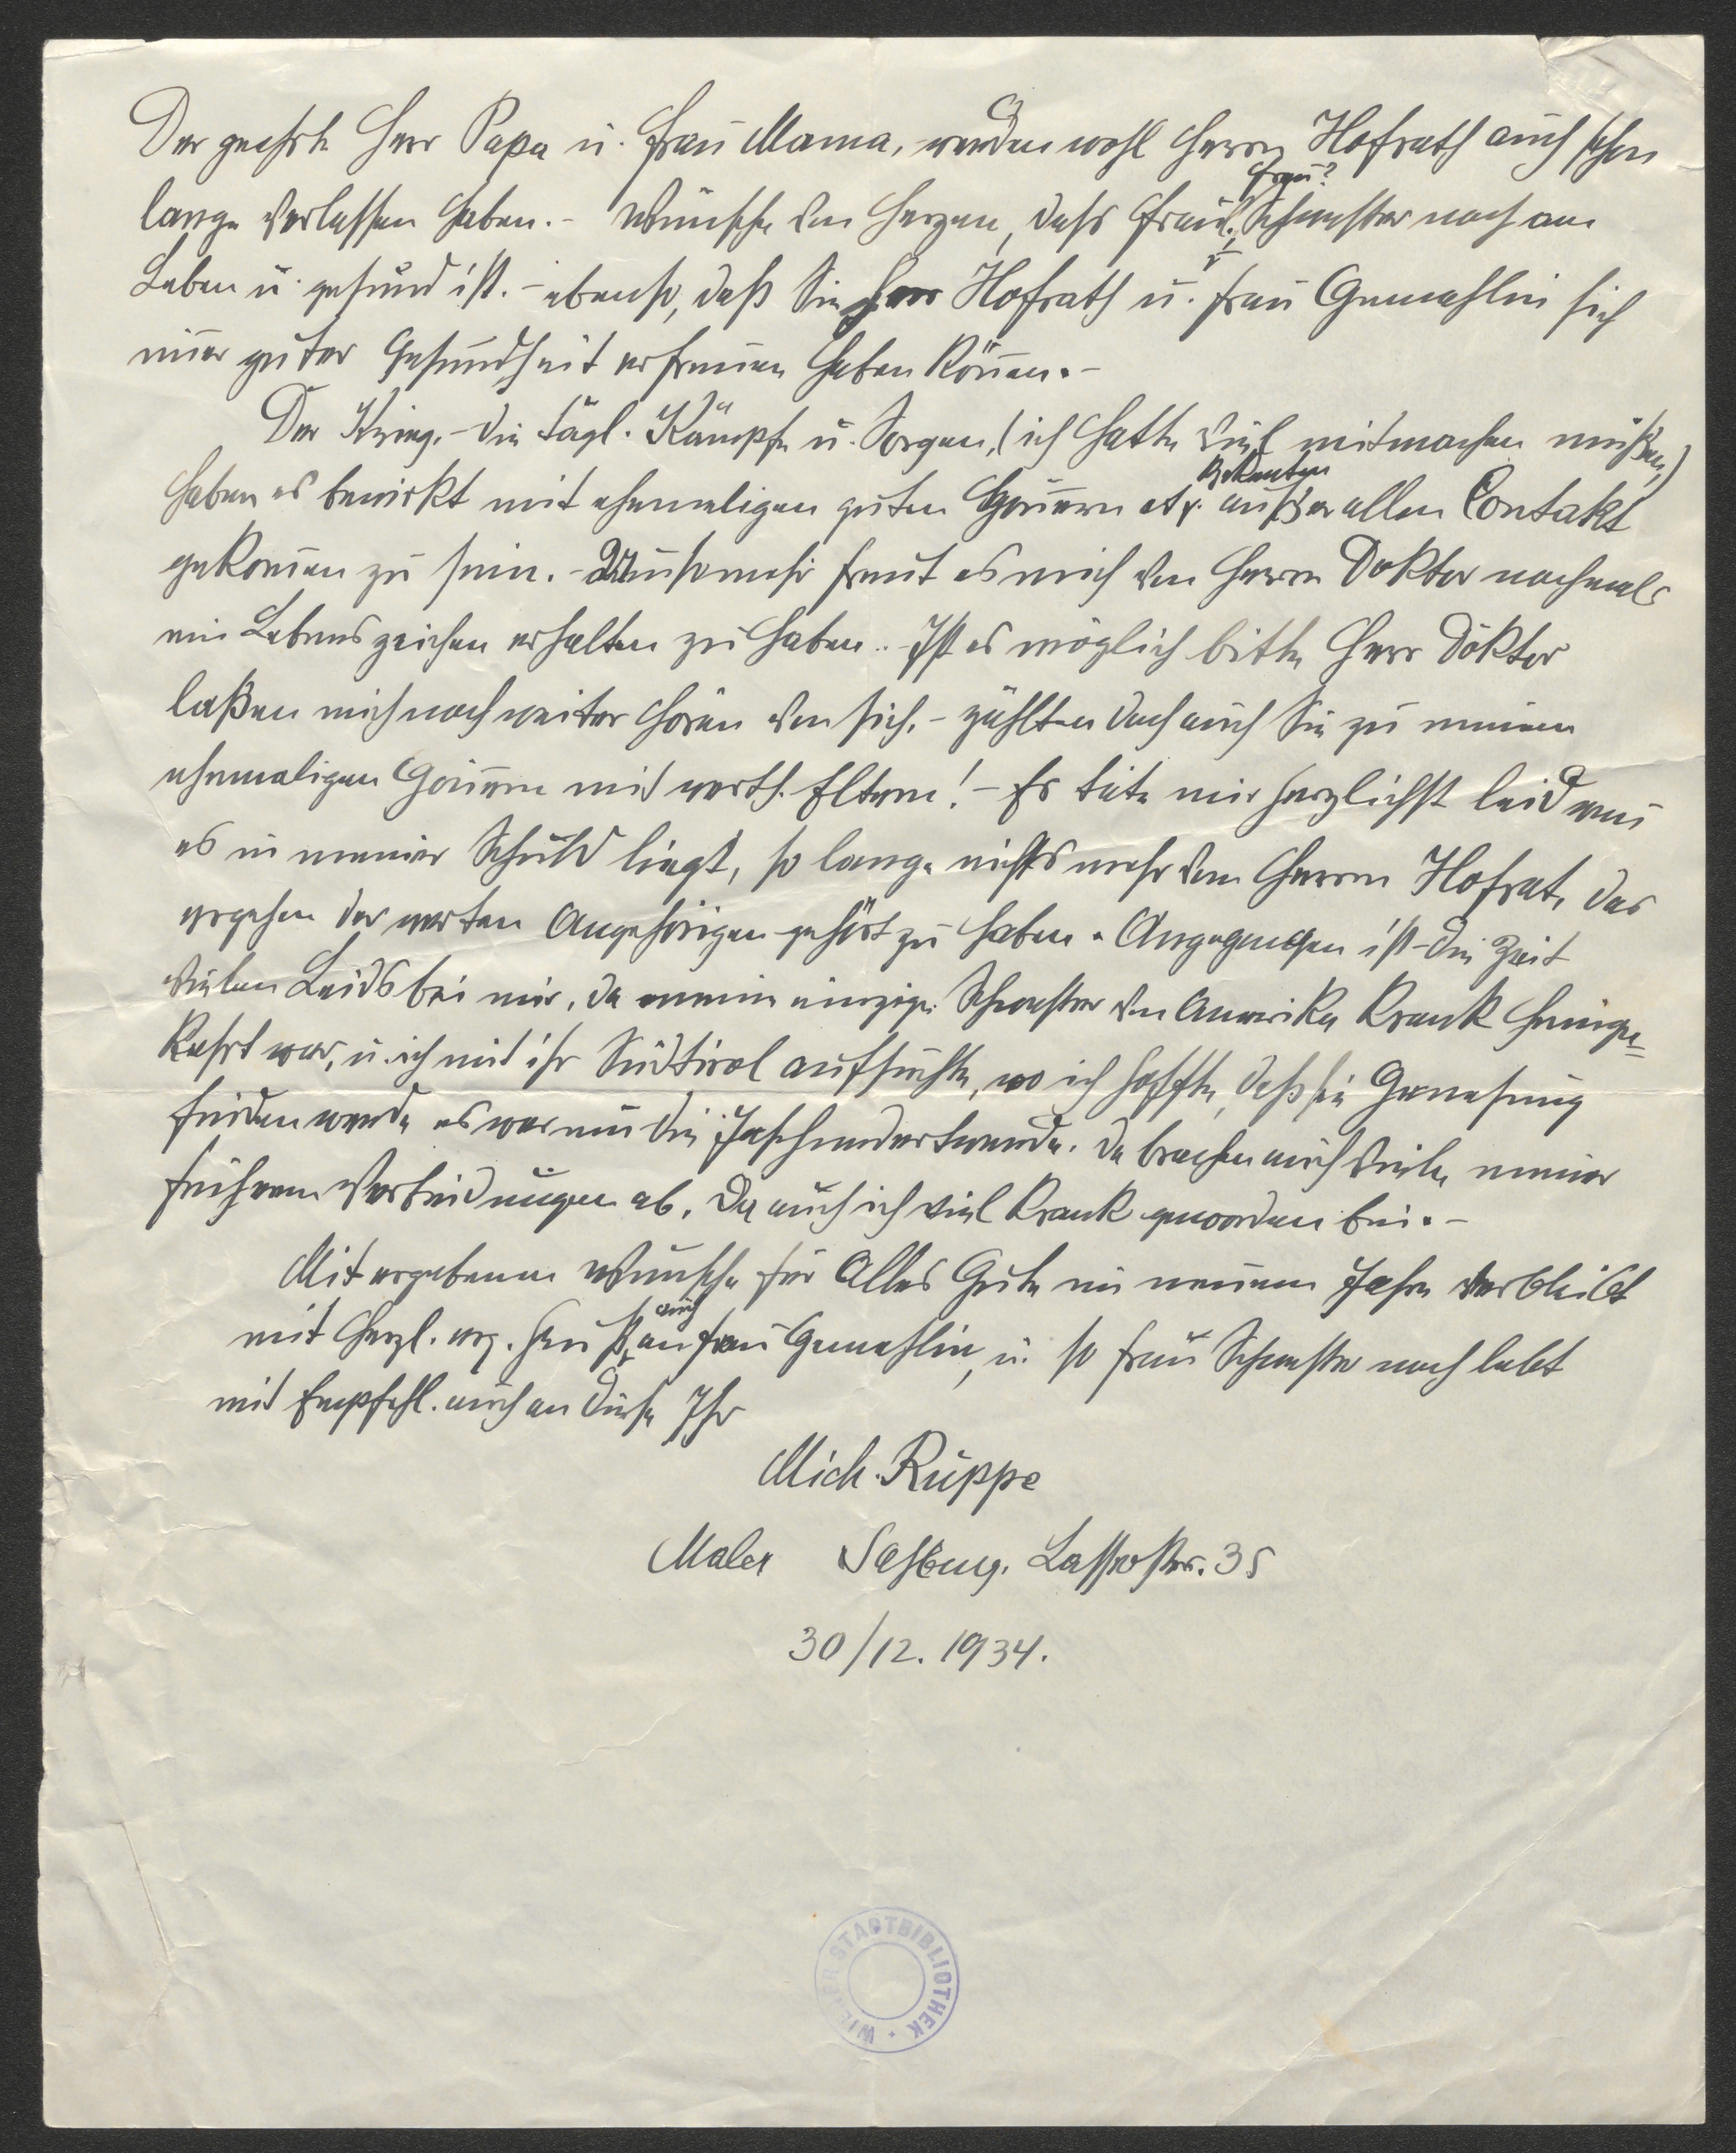 Der geehrte Herr Papa u. Frau Mama, werden wohl Herrn Hofrath auch schon
Frau?
lange verlassen haben.- Wünsche von Herzen, dass Fräul. Schwester noch am
Leben u. gesund ist. - ebenso, daß Sie Herr Hofrath u. Frau Gemahlin sich
guter Gesundheit erfreuen haben können.-
Der Krieg.- die tägl. Kämpfe u. Sorgen, (ich hatte viel mitmachen müßen,)
Bekanten
haben es bewirkt mit ehemaligen guten Gönnern etz. außer allen Contakt
gekommen zu sein. - Umsomehr freut es mich von Herrn Doktor nochmals
ein Lebenszeichen erhalten zu haben.. - Ist es möglich bitte Herr Doktor
laßen mich noch weiter hören von sich. - zählten doch auch Sie zu meinen
ehemaligen Gönnern mit werth. Eltern! - Es täte mir herzlichst leid wen
es in meiner Schuld liegt, so lange nichts mehr vom Herrn Hofrat, das
ergehen der werten Angehörigen gehört zu haben. ist die Zeit
vielen Leids bei mir, da meine einzige Schwester von Amerika krank heimge=
kehrt war, u. ich mit ihr Südtirol aufsuchte, wo ich hoffte, daß sie Genesung
finden werde es war um die Jahrhundertwende. Da brachen auch viele meiner
früheren Verbindungen ab. Da auch ich viel krank geworden bin. -
Mit ergebenem Wunsche für Alles Gute im neuem Jahre verbleibt
auch
mit herzl. erg. Gruß an Frau Gemahlin, u. so Frau Schwester noch lebt
mit Empfehl. auch an diese Ihr
Mich. Ruppe
Maler Salzbug. Lasserstr. 35
30/12. 1934.
WIENER STADTBIBLIOTHEK